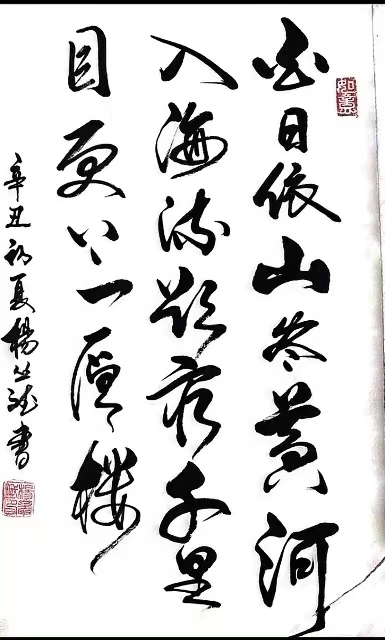 如意
白日依山尽黄河
入海流欲穷千里
目更上一層樓
辛丑初夏楊书